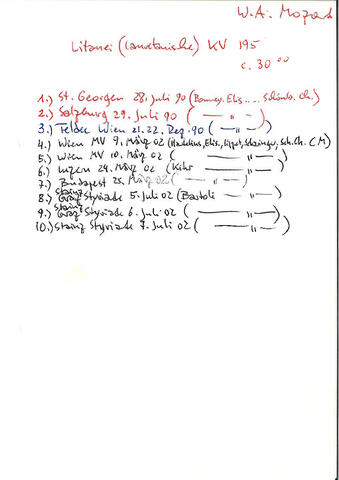 W.A. Mozart
Litanei (Lauretanische) KV 195
c. 30 00
1.) St. Georgen 28. Juli 90 (Bonney, Elis.... Schönb. Ch.)
2.) Salzburg 29. Juli 90 ( — " — )
3.) Teldec Wien 21. 22. Dez. 90 ( — " — )
4.) Wien MV 9. März 02 (Elis., Lippert, Sch. Ch. CM)
5.) Wien MV 10. März 02 ( — " — )
6.) Luzern 24. März 02 (Kühr — " — )
7.) Budapest 25. März 02 ( — " — )
8.) Stainz Graz Styriade 5. Juli 02 (Bartoli — " — )
9.) Stainz Graz Styriade 6. Juli 02 ( — " — )
10.) Stainz Styriade 7. Juli 02 ( — " — )